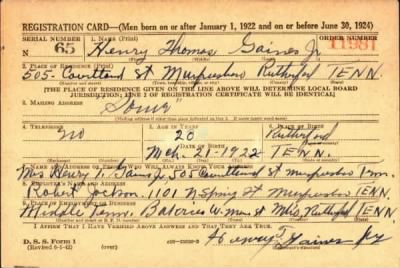 REGISTRATION CARD—(Men born on or after January 1, 1922 and on or before June 30, 1924)
SERIAL NUMBER 1. NAME (Print) ORDER NUMBER
65 Henry Thomas Gaines Jr 11981
2. PLACE OF RESIDENCE (Print)
505- Courtland St Murfresboro Rutherford TENN.
[THE PLACE OF RESIDENCE GIVEN ON THE LINE ABOVE WILL DETERMINE LOCAL BOARD
JURISDICTION; LINE 2 OF REGISTRATION CERTIFICATE WILL BE IDENTICAL]
3. MAILING ADDRESS
Same
4. TELEPHONE 5. AGE IN YEARS 6. PLACE OF BIRTH
no 20 Rutherford
DATE OF BIRTH
Mch. 21-1922 TENN.
7. NAME AND ADDRESS OF PERSON WHO WILL ALWAYS KNOW YOUR ADDRESS
Mrs Henry T. Gaines Jr 505 Courtland St Murfresboro Tenn.
8. EMPLOYER'S NAME AND ADDRESS
Robert 1101 N Spring St Murfresboro TENN
9. PLACE OF EMPLOYMENT OR BUSINESS
Middle Tenn. W. Main St Rutherford TENN
I AFFIRM THAT I HAVE VERIFIED ABOVE ANSWERS AND THAT THEY ARE TRUE.
D. S. S. Form 1
(Revised 6-9-42) (over)
Henry T Gaines Jr